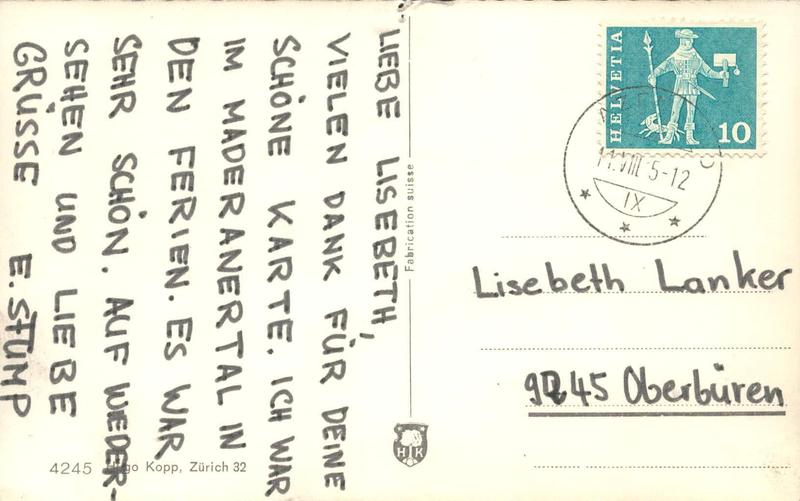 LIEBE LISEBETH,
VIELEN DANK FÜR DEINE
SCHÖNE KARTE. ICH WAR
IM MADERANERTAL IN
DEN FERIEN. ES WAR
SEHR SCHÖN. AUF WIEDER-
SEHEN UND LIEBE
GRÜSSE E. STUMP
4245 Hugo Kopp, Zürich 32
Fabrication suisse
HK
HELVETIA
10
IX
Lisebeth Lanker
9245 Oberbüren